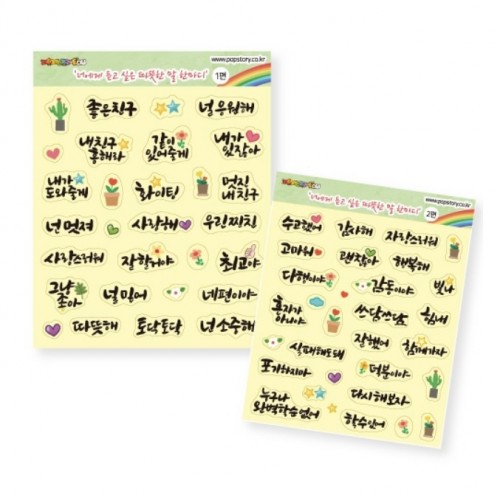 www.popstory.co.kr
'너에게 듣고 싶은 따뜻한 말 한마디'
1편
좋은친구
널 응원해
내친구
홍해라
같이
있어줄게
내가
있잖아
내가
도와줄게
화이팅
멋진
내친구
넌 멋져
사랑해
우린 찐친
사랑스러워
잘할거야
최고야
그냥
좋아
널 믿어
네편이야
따뜻해
토닥토닥
넌 소중해
www.popstory.co.kr
'너에게 듣고 싶은 따뜻한 말 한마디'
2편
수고했어
감사해
자랑스러워
고마워
괜찮아
행복해
다행이야
감동이야
빛나
혼자가
아니야
쓰담쓰담
힘내
실패해도돼
잘했어
함께가자
포기하지마
덕분이야
누구나
완벽할순없어
다시해보자
할수있어